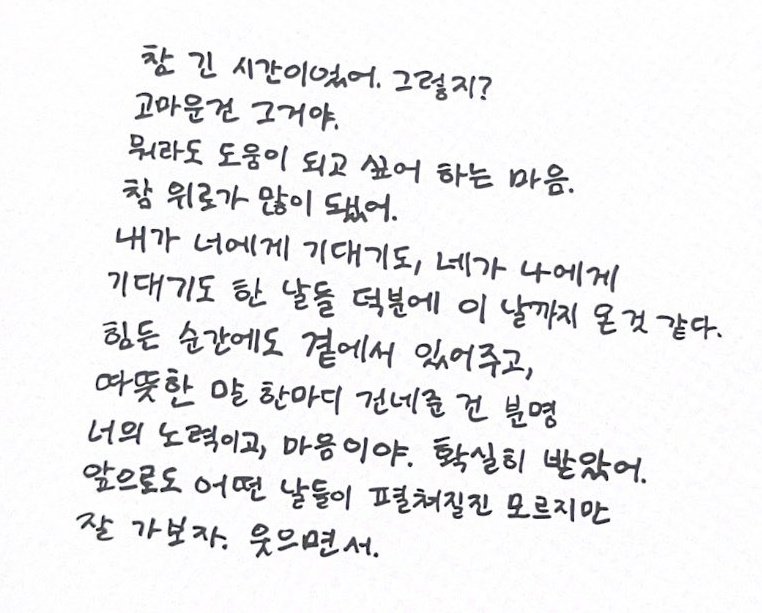 참 긴 시간이었어. 그렇지?
고마운건 그거야.
뭐라도 도움이 되고 싶어 하는 마음.
참 위로가 많이 됐어.
내가 너에게 기대기도, 네가 나에게
기대기도 한 날들 덕분에 이 날까지 온것 같다.
힘든 순간에도 곁에서 있어주고,
따뜻한 말 한마디 건네준 건 분명
너의 노력이고, 마음이야. 확실히 받았어.
앞으로도 어떤 날들이 펼쳐질진 모르지만
잘 가보자. 웃으면서.